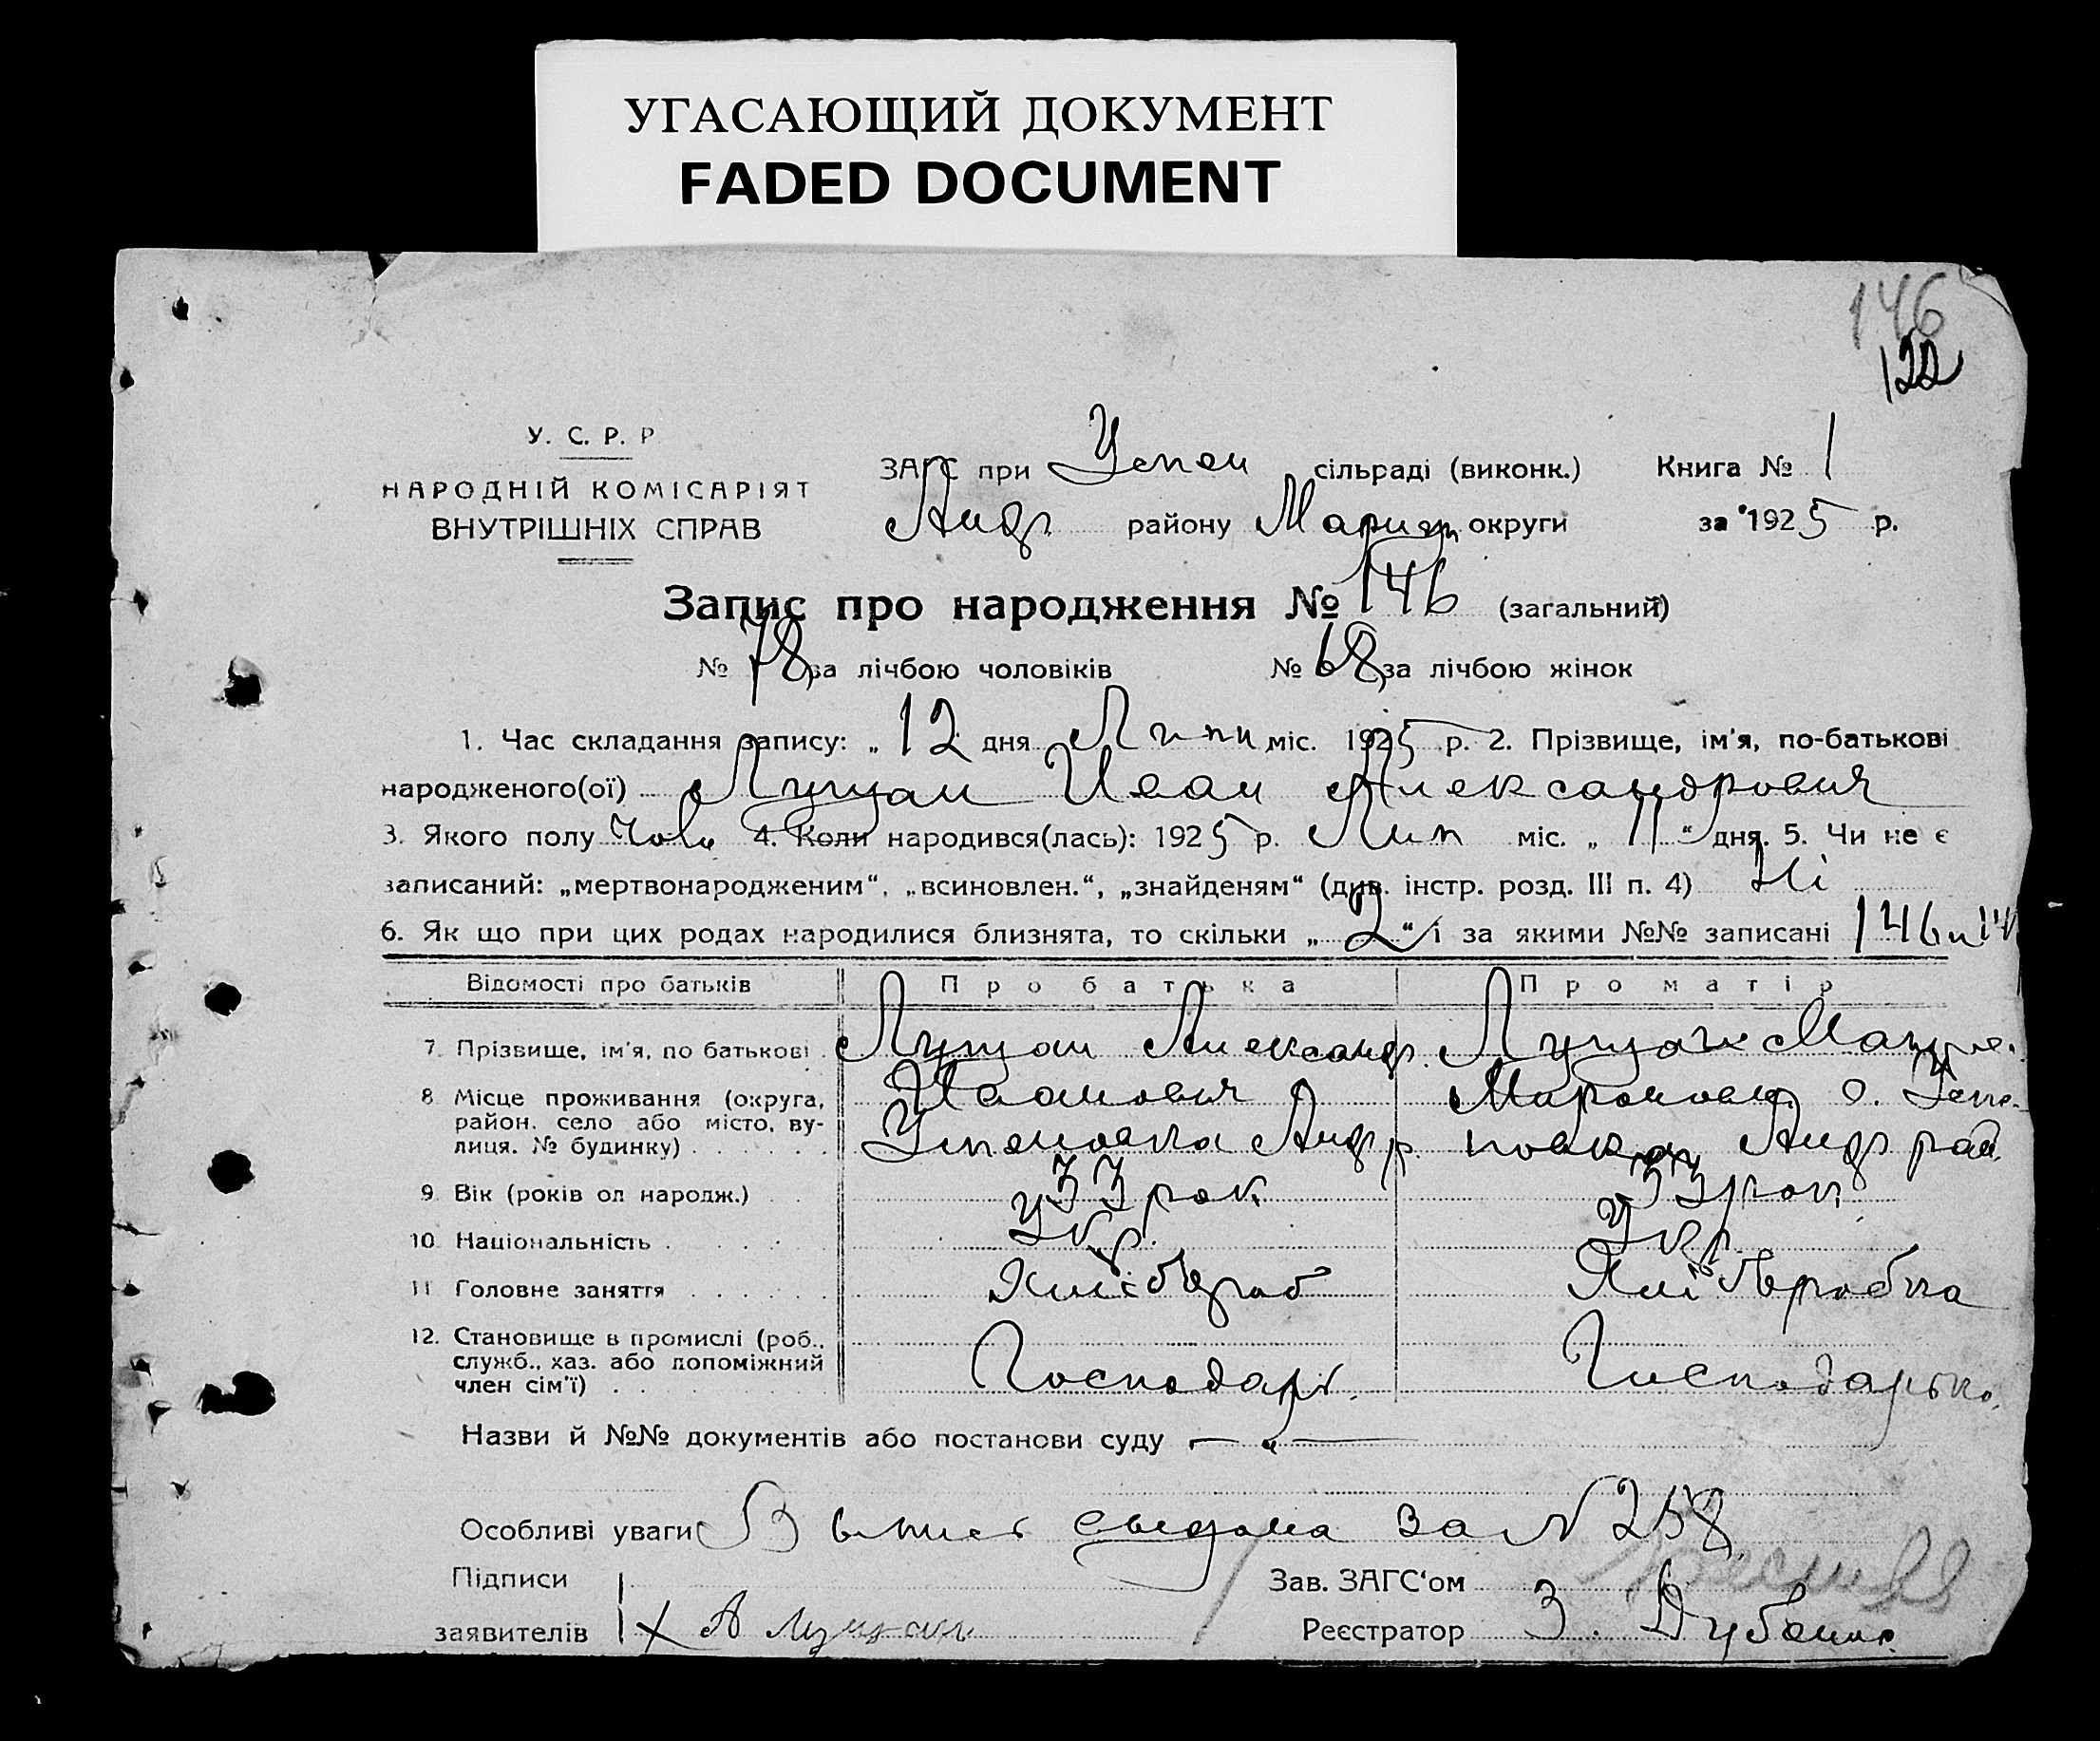 УГАСАЮЩИЙ ДОКУМЕНТ
FADED DOCUMENT
146
122
У. С. Р. Р
НАРОДНІЙ КОМІСАРІЯТ
ВНУТРІШНІХ СПРАВ
ЗАГС при Успен сільраді (виконк.) Книга № 1
Андр району Маріуп округи за 1925 р.
Запис про народження № 146 (загальний)
№ 78 за лічбою чоловіків № 68 за лічбою жінок
1. Час складання запису: „ 12 дня Липн міс. 1925 р. 2. Прізвище, ім'я, по-батькові
народженого(ої) Луцан Иван Александрович
3. Якого полу Чолв 4. Коли народився(лась): 1925 р. Лип міс. „ 11 “ дня. 5. Чи не є
записаний: „мертвонародженим“, „всиновлен.“, „знайденям“ (див. інстр. розд. III п. 4) Ні
6. Як що при цих родах народилися близнята, то скільки „ 2 “ і за якими №№ записані 146 и
Відомості про батьків Про батька Про матір
7. Прізвище, ім'я, по батькові Луцан Александр Луцан
8. Місце проживання (округа, район. село або місто, вулиця. № будинку) Иванович
Успеновка Андр р. Андр рай.
9. Вік (років од народж.) 33 рок 33 рок
10. Національність Укр. Укр.
11. Головне заняття Хлібороб Хлібробка
12. Становище в промислі (роб.,
служб., хаз. або допоміжний
член сім'ї) Господарь. Господарька.
Назви й №№ документів або постанови суду — „ —
Особливі уваги Выпись за № 258
Підписи Зав. ЗАГС‘ом
заявителів А Луцан Реєстратор З.